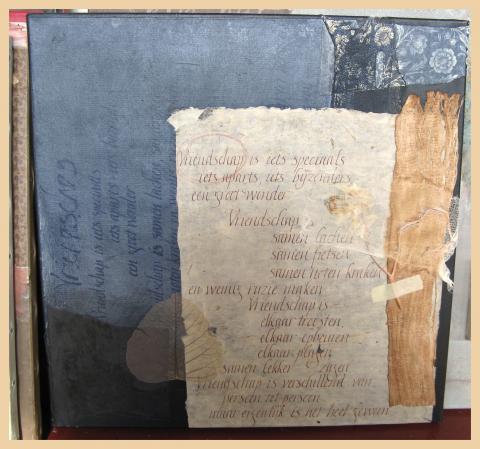 Vriendschap is iets speciaals
iets aparts, iets bijzonders,
een groot wonder
Vriendschap
samen lachen
samen fietsen
samen noten kraken
en weinig ruzie maken
Vriendschap is
elkaar troosten,
elkaar opbeuren
elkaar plagen
samen lekker
Vriendschap is verschillend van
persoon tot persoon
maar eigenlijk is het heel gewoon
Vriendschap
Vriendschap is iets speciaals
iets aparts
een groot wonder
is samen lachen,